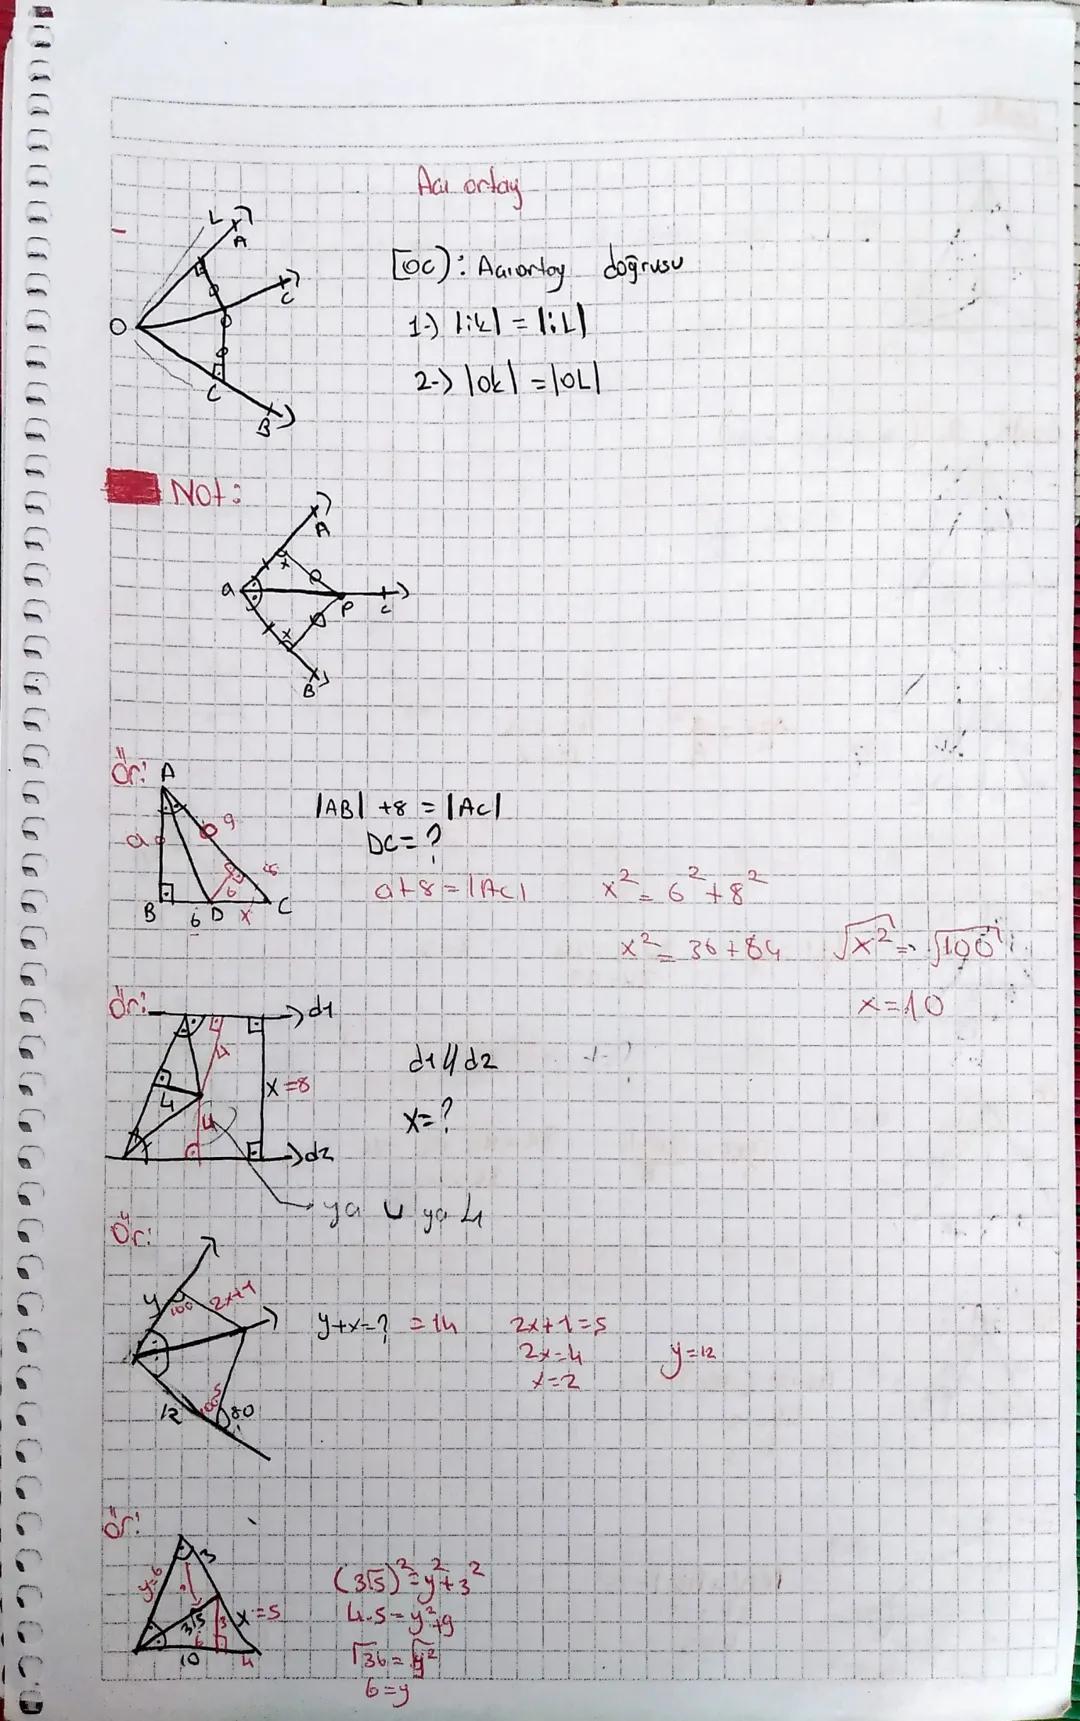 Acı ortay
L
A
C
O
C
B
[OC): Acıortay doğrusu
1-) |ik| = |iL|
2-) |ok| = |OL|
Not:
A
x
a
P
c
x
B
Ör:
A
a
9
8
6
B
6
D
x
C
|AB| +8 = |AC|
DC= ?
a+8 = |AC|
x² = 6² + 8²
x² = 36 + 64
√x² = √100
x=10
Ör:
d1
4
4
4
x =8
d2
d1//d2
x=?
ya u ya 4
Ör:
y
100
2x+1
12
100
5
80
y+x=? = 14
2x+1=5
2x=4
x=2
y=12
Ör:
3
y=6
3√5
3
x=5
6
10
4
(3√5)² = y² + 3²
4.5 = y²+9
√36 = √y²
6=y